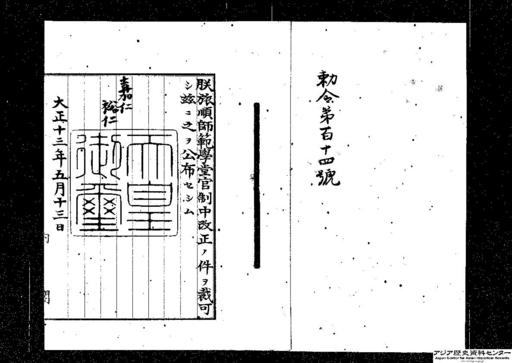 勅令第百十四號
朕旅順師範學堂官制中改正ノ件ヲ裁可
シ茲ニ之ヲ公布セシム
嘉仁
裕仁
天皇
御璽
大正十三年五月十三日
内閣
アジア歴史資料センター
Japan Center for Asian Historical Records